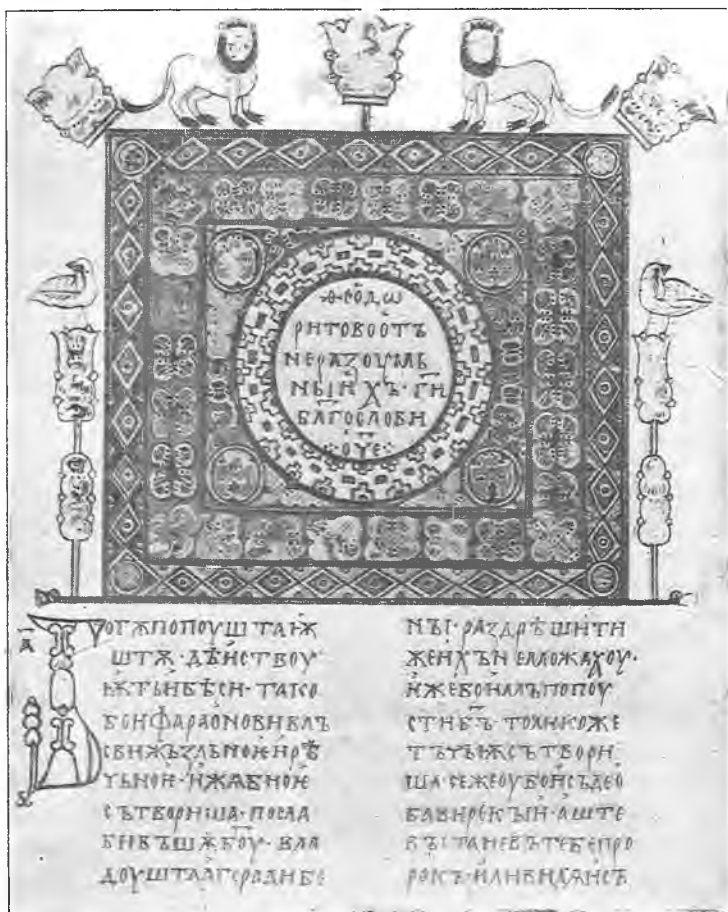 ѳеодѡ
ритовоотъ
неразоумь
ныихъ· гн
благослови
оче
Богѫпопоуштаѭ
штѫ· дѣиствоу
ѭтьибѣси· тако
боифараоновивлъ
свижьзльноѥирѣ
чьноѥ· ижѧбьноѥ
сътвориша· посла
бивъшѫбоу· вла
доуштаагорадибе
ны· раздрѣшити
жеихънеможахоу·
ижебоималъпопоу
стибъ· томикоже
тъчьѭсътвори
ша· сежеоубоисъдео
бавирекыи· аште
въстаневътебепро
рокъ· иливидѧисъ